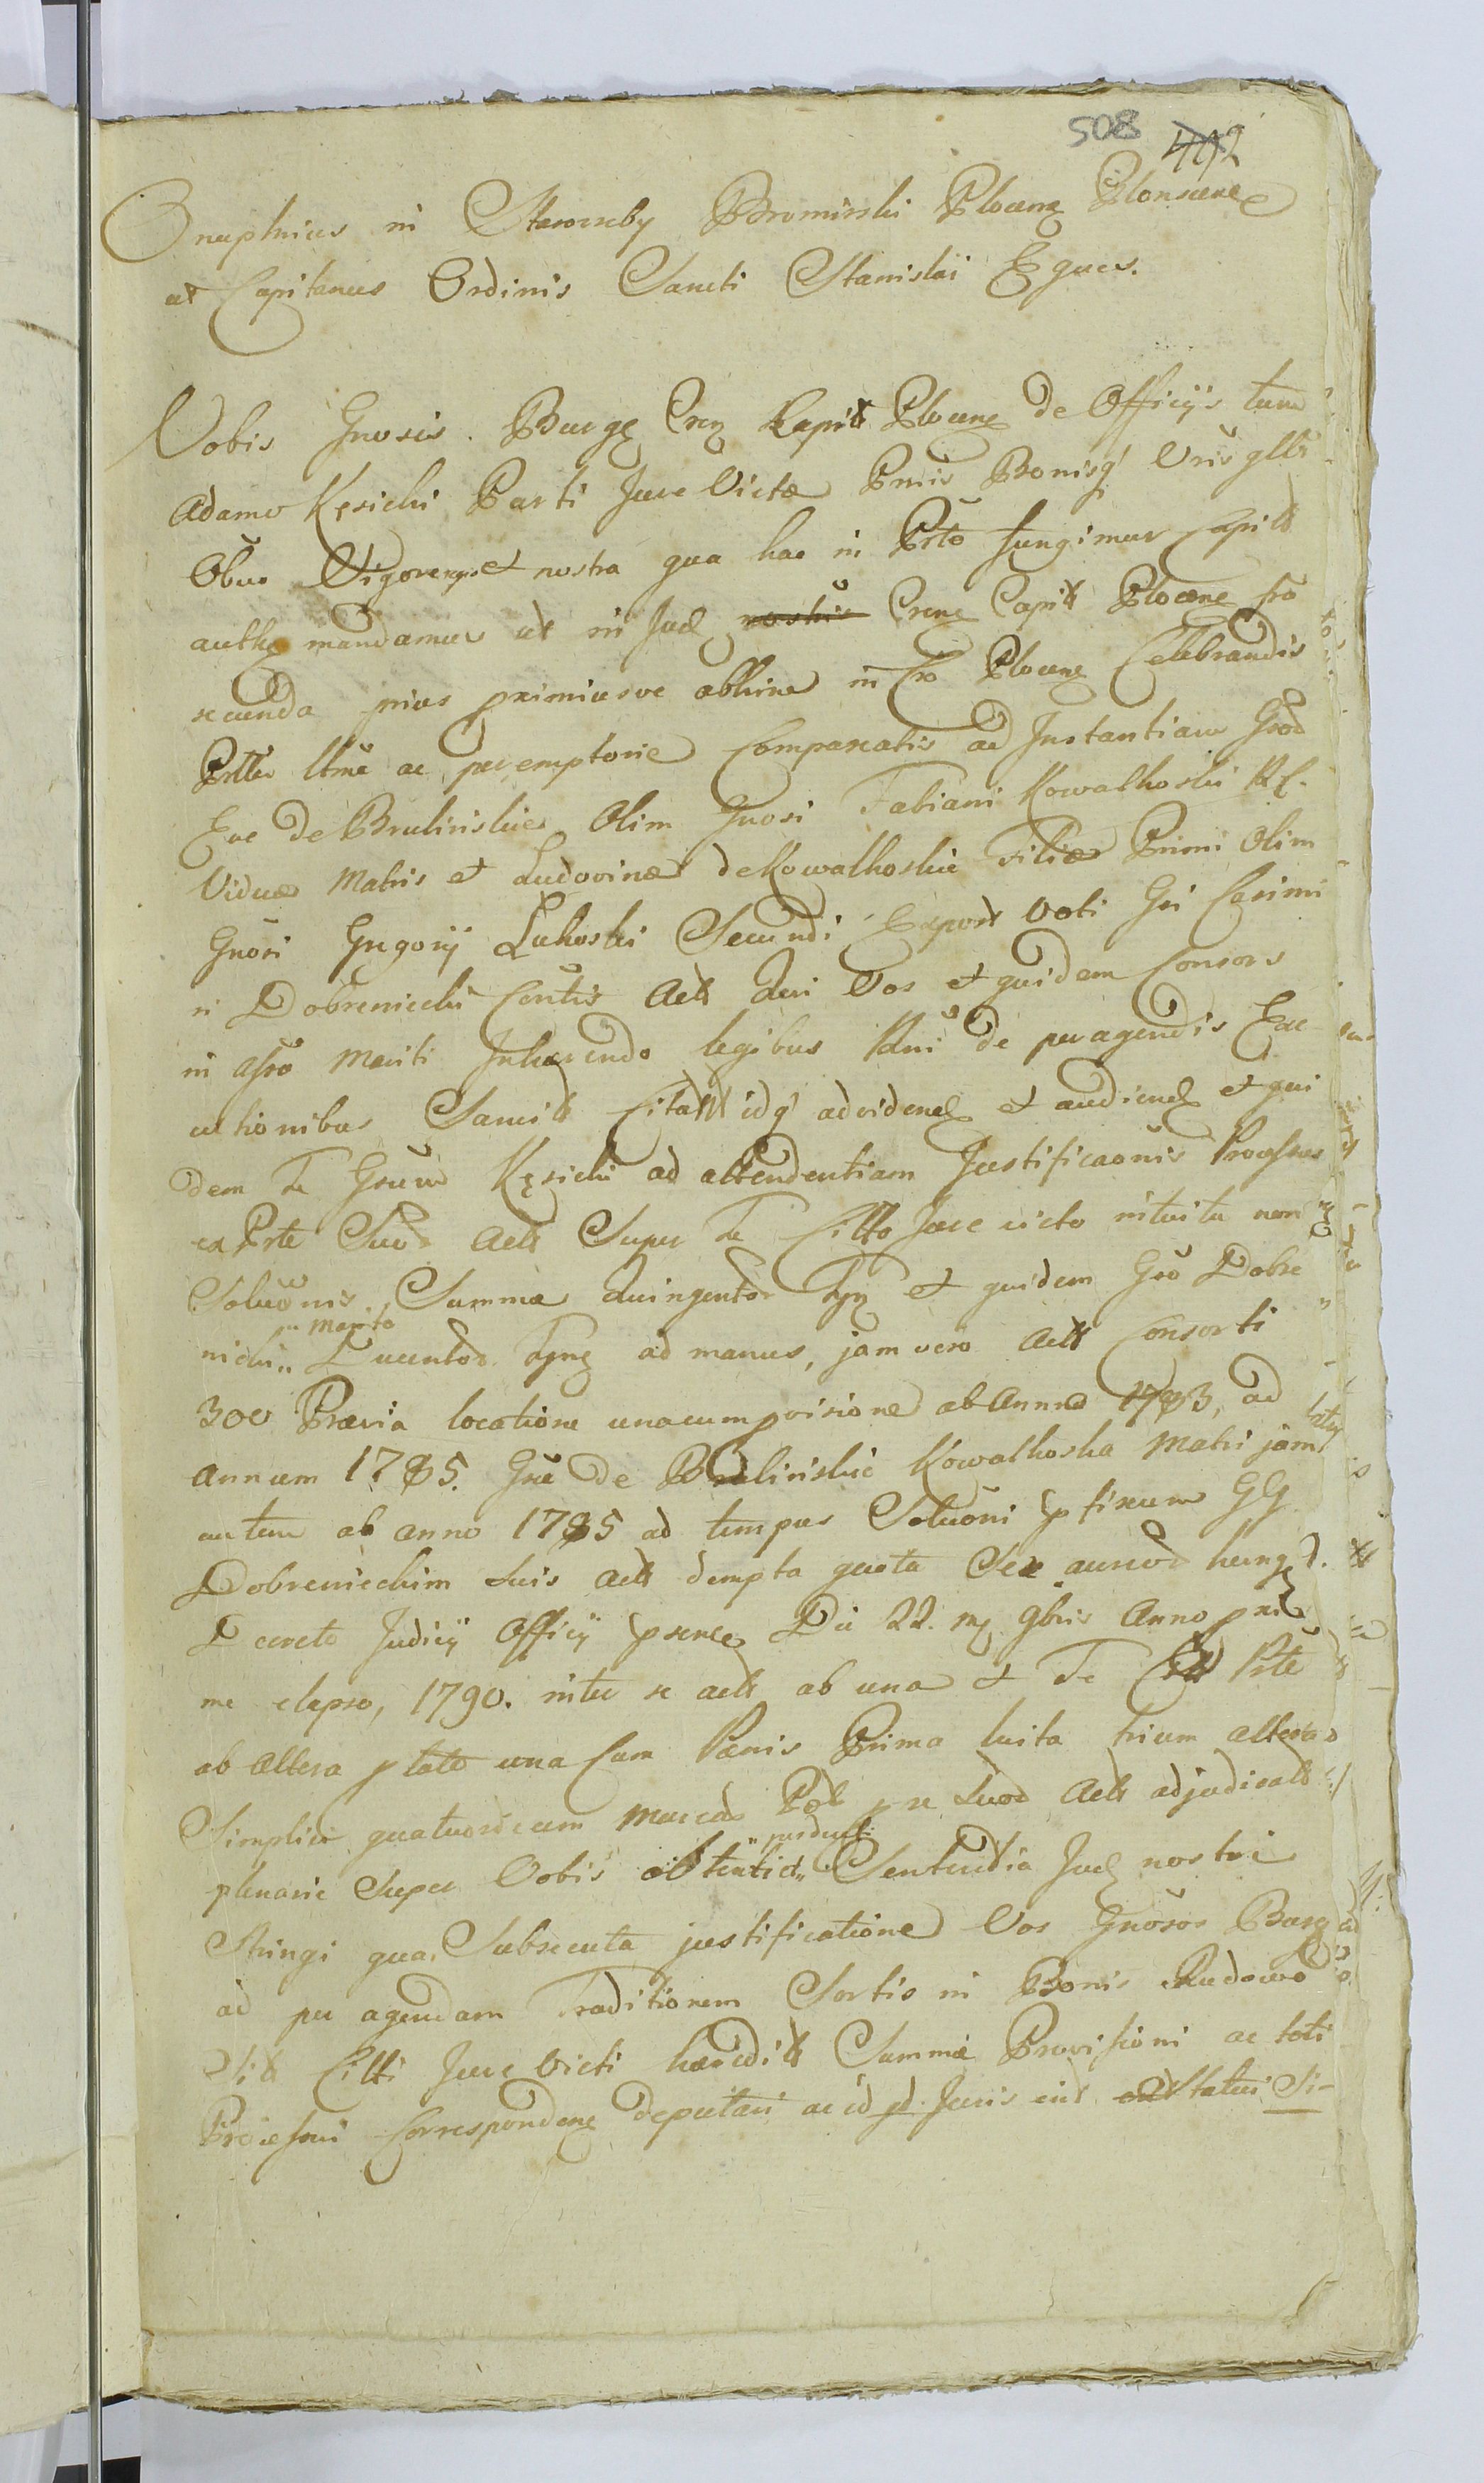 508 492
Onuphrius in Starorzeby Bromirski Plocens Plonscens
ac Capitaneus Ordinis Sancti Stanislai Eques.
Vobis Gnosis. Burgs Crens Capit Plocens de Officijs tum
Adamo Kęsicki Parti Jure Victæ Pnus Bonisq Vris gllr
Obus Vigore et nostra qua hac in Prto fungimur Capitt
autte mandamus ut in Jud nostris Crens Capitt Plocens fro
secunda prius primiusve abhinc in Cro Plocens Celebrandis
Prttr ltme ac peremptorie Compareatis ad Instantiam Grod
Evæ de Brulinskie Olim Gnosi Fabiani Kowalkoski Rl.
Viduæ Matris et Ludovinæ de Kowalkoskie Filiæ Primi Olim
Gnosi Gregorij Lukoski Secundi Expost Voti Gsi Casimi
ri Dobreniecki Contis Actt duri Vos et quidem Consors
in assa Mariti Inhærendo legibus Rni de peragendis Exe
cutionibus Sancitt Citatt idq advidend et audiend et qui
dem Te Gsum Kęsicki ad attendentiam Justificaonis Processus
ex Prte Suor Actt Super Te Citto Jure victo intuitu non
Soluonis Summæ Quingentor Tynf et quidem Gso Dobre
nicki Marito Ducentor Tynf ad manus, jam vero Actt Consorti
300 Prævia locatione unacum provisione ab Anno 1783, ad
annum 1785. Gsæ de Brulinskie Kowalkoska Matri jam
autem ab anno 1785 ad tempus Soluoni pfixum GG
Dobrenieckim Suis Actt dempta quota Sex aureor hung
Decreto Judicij Officij psentis Die 22. ms 9bris Anno pxi
me elapso, 1790. inter se actt ab una et Te Citt Prte
ab altera plato una Cum Pœnis Prima luita trium altera
Simplici quatuordecim Marcar Pol pse Suor Actt adjudicatt
plenarie Super Vobis obtentis Sententia Jud nostri
Stringi qua Subsecuta justificatione Vos Gnosos Burg
ad per agendam Traditionem Sortis in Bonis Rudowo
Sitt Citti Jure Victi hæreditt Summæ Provisioni ac toti
Processui Correspondens deputari ac id qd Juris erit Statui Si-